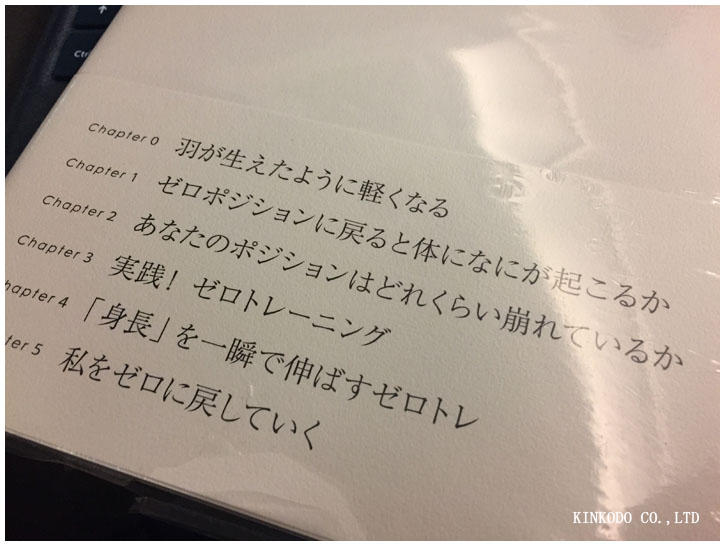 Ctrl
Chapter 0 羽が生えたように軽くなる
Chapter 1 ゼロポジションに戻ると体になにが起こるか
Chapter 2 あなたのポジションはどれくらい崩れているか
Chapter 3 実践！ ゼロトレーニング
hapter 4 「身長」を一瞬で伸ばすゼロトレ
ter 5 私をゼロに戻していく
KINKODO CO.,LTD